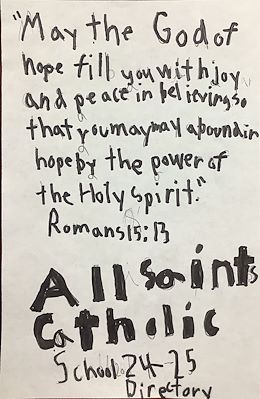 "May the God of
hope fill you with joy
and peace in believing so
that you may may abound in
hope by the power of
the Holy Spirit."
Romans 15:13
All saints
Catholic
School 24-25
Directory